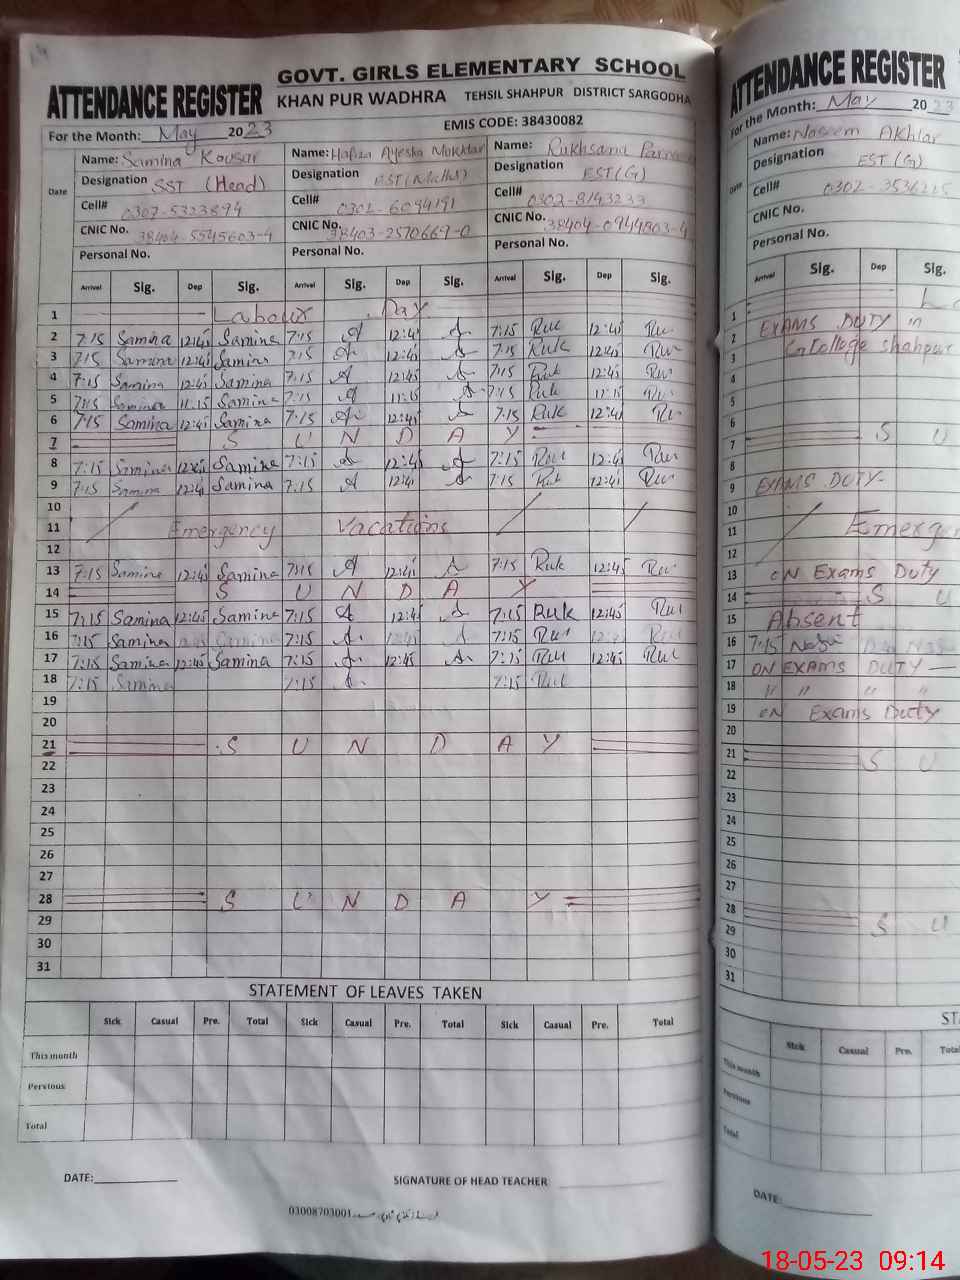 GOVT. GIRLS ELEMENTARY SCHOOL
ATTENDANCE REGISTER KHAN PUR WADHRA TEHSIL SHAHPUR DISTRICT SARGODHA
For the Month: May 2023 EMIS CODE: 38430082
Date
Name: Samina Kousar Name: Hafiza Ayesha Mukhtar Name: Rukhsana
Designation SST (Head) Designation EST (Maths) Designation EST (G)
Cell# 0307-5323894 Cell# 0302-6094191 Cell# 0302-8143233
CNIC No. 38404-5545603-4 CNIC No. 38403-2570669-0 CNIC No. 38404-0944803-4
Personal No. Personal No. Personal No.
Arrival Sig. Dep Sig. Arrival Sig. Dep Sig. Arrival Sig. Dep Sig.
1 Labour Day
2 7:15 Samina 12:45 Samina 7:15 A 12:45 A 7:15 Ruk 12:45 Ru
3 7:15 Samina 12:45 Samina 7:15 A 12:45 A 7:15 Ruk 12:45 Ru
4 7:15 Samina 12:45 Samina 7:15 A 12:45 A 7:15 Ruk 12:45 Ru
5 7:15 Samina 11:15 Samina 7:15 A 11:15 A 7:15 Ruk 11:15 Ru
6 7:15 Samina 12:45 Samina 7:15 A 12:45 A 7:15 Ruk 12:45 Ru
7 S U N D A Y
8 7:15 Samina 12:45 Samina 7:15 A 12:45 A 7:15 Ruu 12:45 Ruu
9 7:15 Samina 12:45 Samina 7:15 A 12:45 A 7:15 Ruk 12:45 Ruu
10
11 Emergency Vacations
12
13 7:15 Samina 12:45 Samina 7:15 A 12:45 A 7:15 Ruk 12:45 Ru
14 S U N D A Y
15 7:15 Samina 12:45 Samina 7:15 A 12:45 A 7:15 Ruk 12:45 Ru
16 7:15 Samina Samina 7:15 A 12:45 A 7:15 Ru
17 7:15 Samina 12:45 Samina 7:15 A 12:45 A 7:15 Ruu 12:45 Ruu
18 7:15 Samina 7:15 A 7:15 Ruk
19
20
21 S U N D A Y
22
23
24
25
26
27
28 S U N D A Y
29
30
31
STATEMENT OF LEAVES TAKEN
Sick Casual Pre. Total Sick Casual Pre. Total Sick Casual Pre. Total
This month
Pervious
Total
DATE: SIGNATURE OF HEAD TEACHER
03008703001
ATTENDANCE REGISTER
For the Month: May 2023
Date
Name: Naseem Akhtar
Designation EST (G)
Cell# 0302-3536215
CNIC No.
Personal No.
Arrival Sig. Dep Sig.
1
2 EXAMS DUTY in
3 College Shahpur
4
5
6
7 S U
8
9 EXAMS DUTY-
10
11
12
13 ON Exams Duty
14 S U
15 Absent
16 7:15
17 ON EXAMS DUTY
18 " " " "
19 ON Exams Duty
20
21 S U
22
23
24
25
26
27
28 S U
29
30
31
Sick Casual Pre.
This month
Pervious
Total
DATE:
18-05-23 09:14